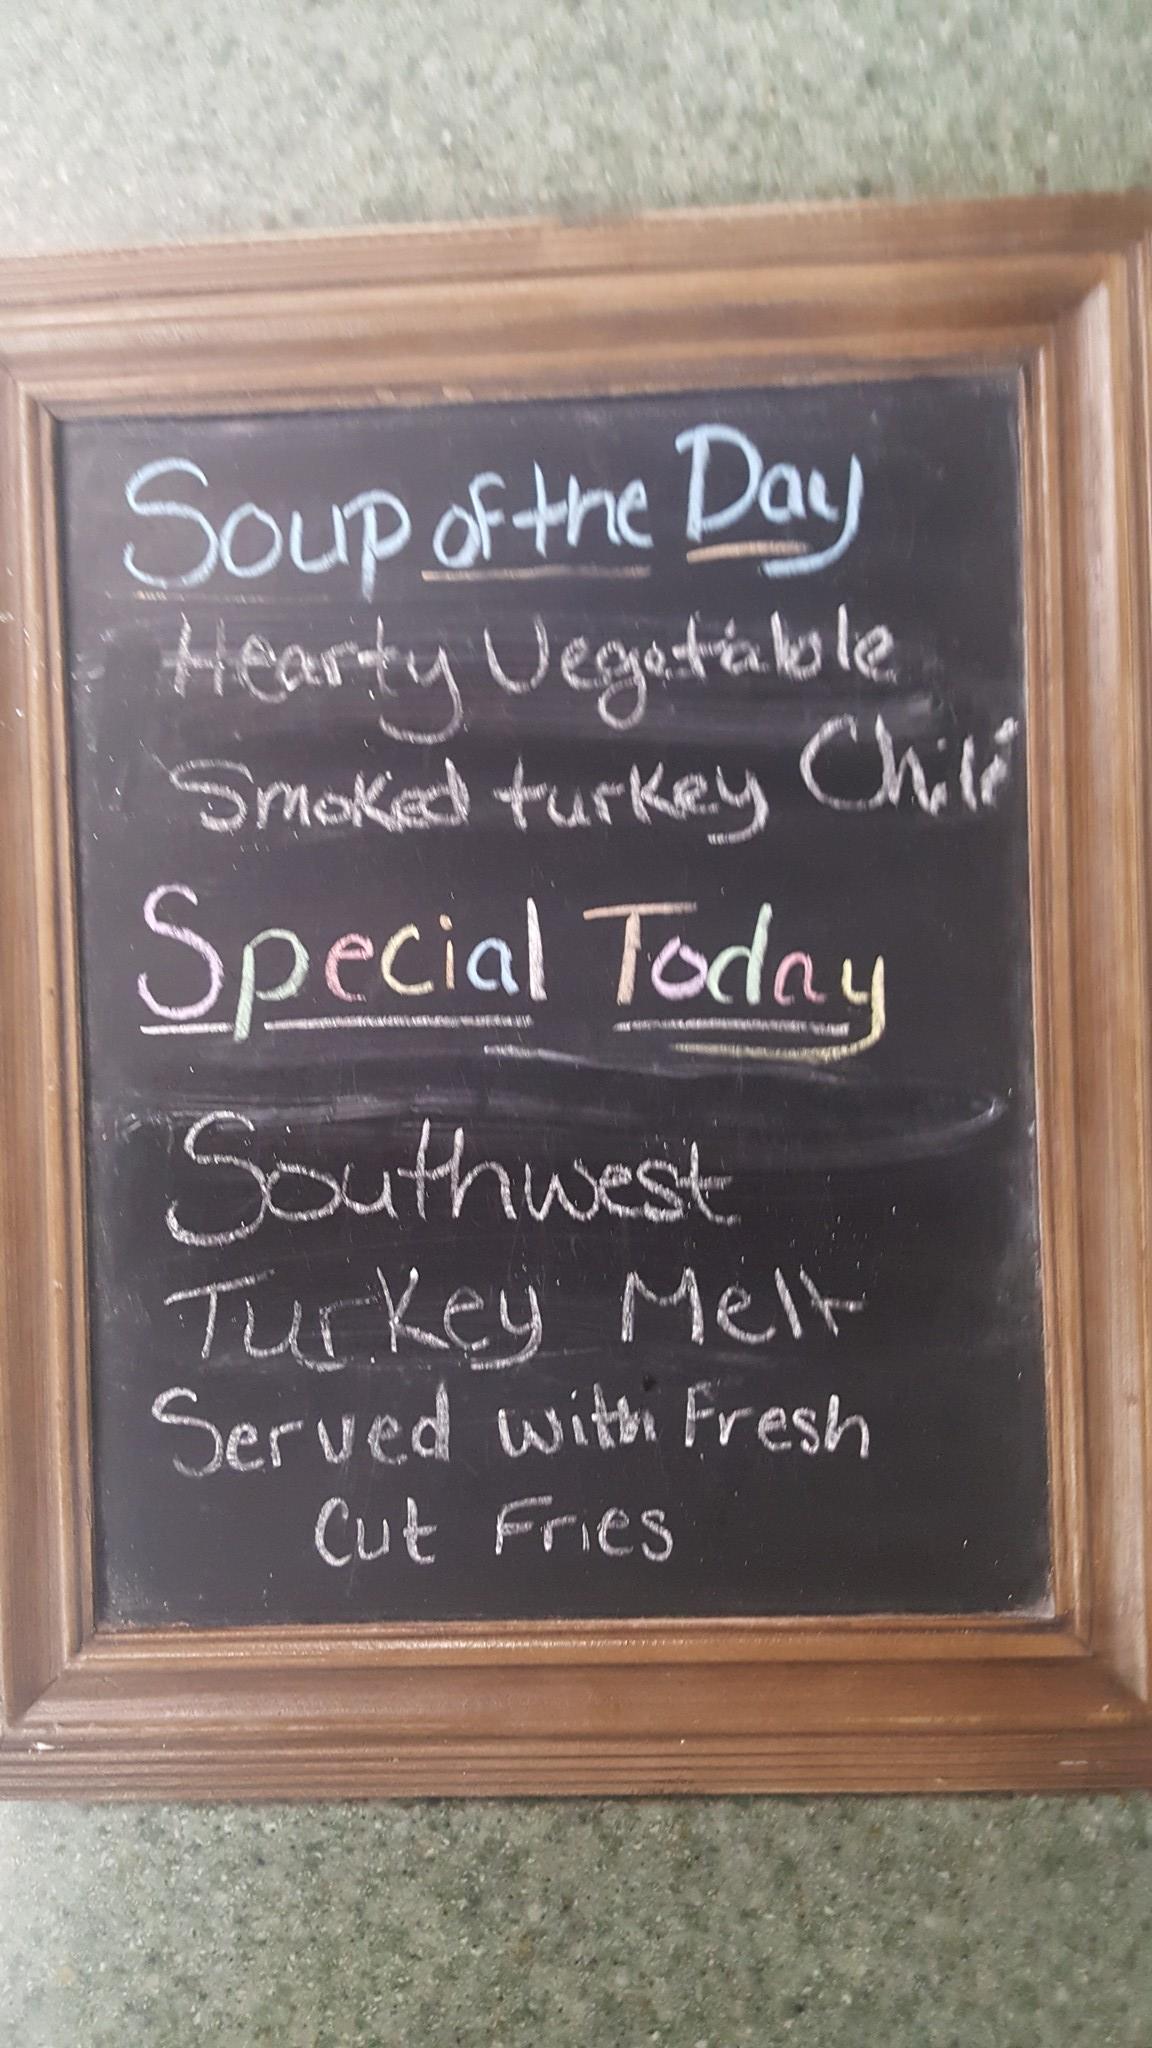 Soup of the Day
Hearty Vegetable
Smoked turkey Chili
Special Today
Southwest
Turkey Melt
Served with Fresh
Cut Fries